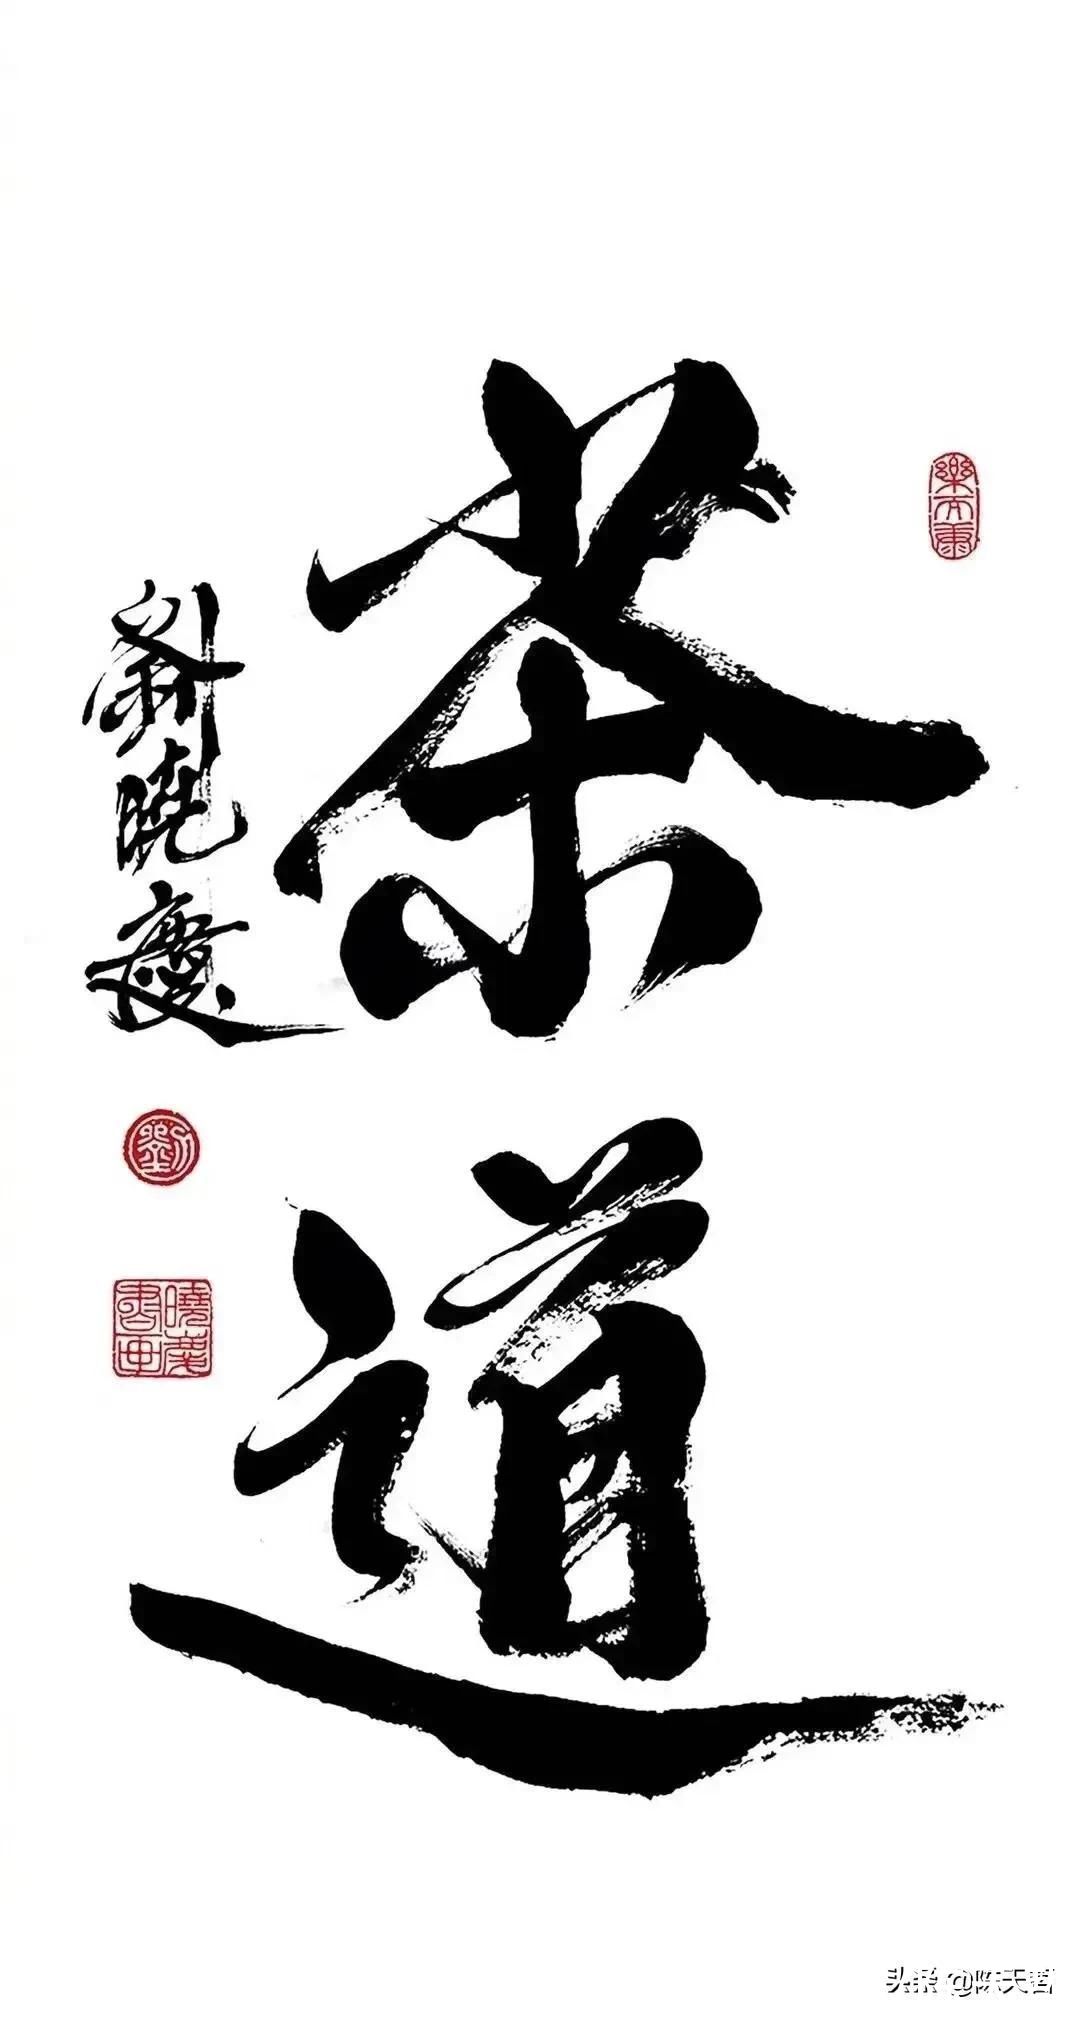 茶道
劉曉慶
劉
曉慶書画
头条 @陈天哲